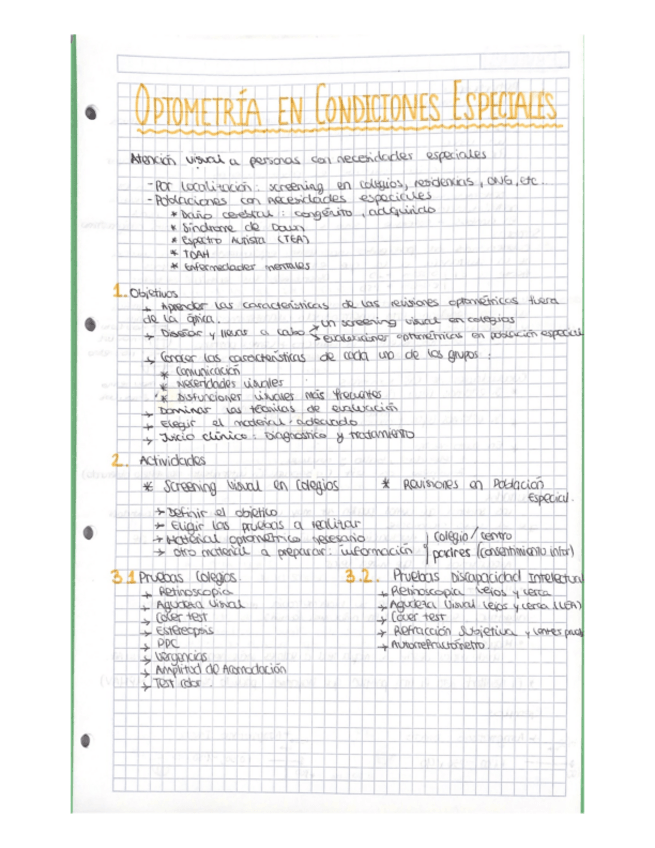 OPTOMETRÍA EN CONDICIONES ESPECIALES
Atención visual a personas con necesidades especiales
- Por localización: screening en colegios, residencias, ONG, etc.
- Poblaciones con necesidades especiales
* Daño cerebral: congénito, adquirido
* Síndrome de Down
* Espectro Autista (TEA)
* TDAH
* Enfermedades mentales
1. Objetivos
→ Aprender las características de las revisiones optométricas fuera
de la óptica.
→ Diseñar y llevar a cabo → un screening visual en colegios
→ evaluaciones optométricas en población especial
→ Conocer las características de cada uno de los grupos:
* Comunicación
* Necesidades visuales
* Disfunciones visuales más frecuentes
→ Dominar las técnicas de evaluación
→ Elegir el material adecuado
→ Juicio clínico: Diagnóstico y tratamiento
2. Actividades
* Screening Visual en Colegios
* Revisiones en Población
Especial.
→ Definir el objetivo
→ Eligir las pruebas a realizar
→ Material optométrico necesario
→ otro material a preparar: información
colegio / centro
padres (consentimiento infor)
3.1 Pruebas Colegios
→ Retinoscopía
→ Agudeza visual
→ Cover test
→ Estereopsis
→ PPC
→ Vergencias
→ Amplitud de Acomodación
→ Test color.
3.2. Pruebas Discapacidad Intelectual
→ Retinoscopía lejos y cerca
→ Agudeza Visual lejos y cerca (LEA)
→ Cover test
→ Refracción Subjetiva y lentes
→ Autorrefractómetro